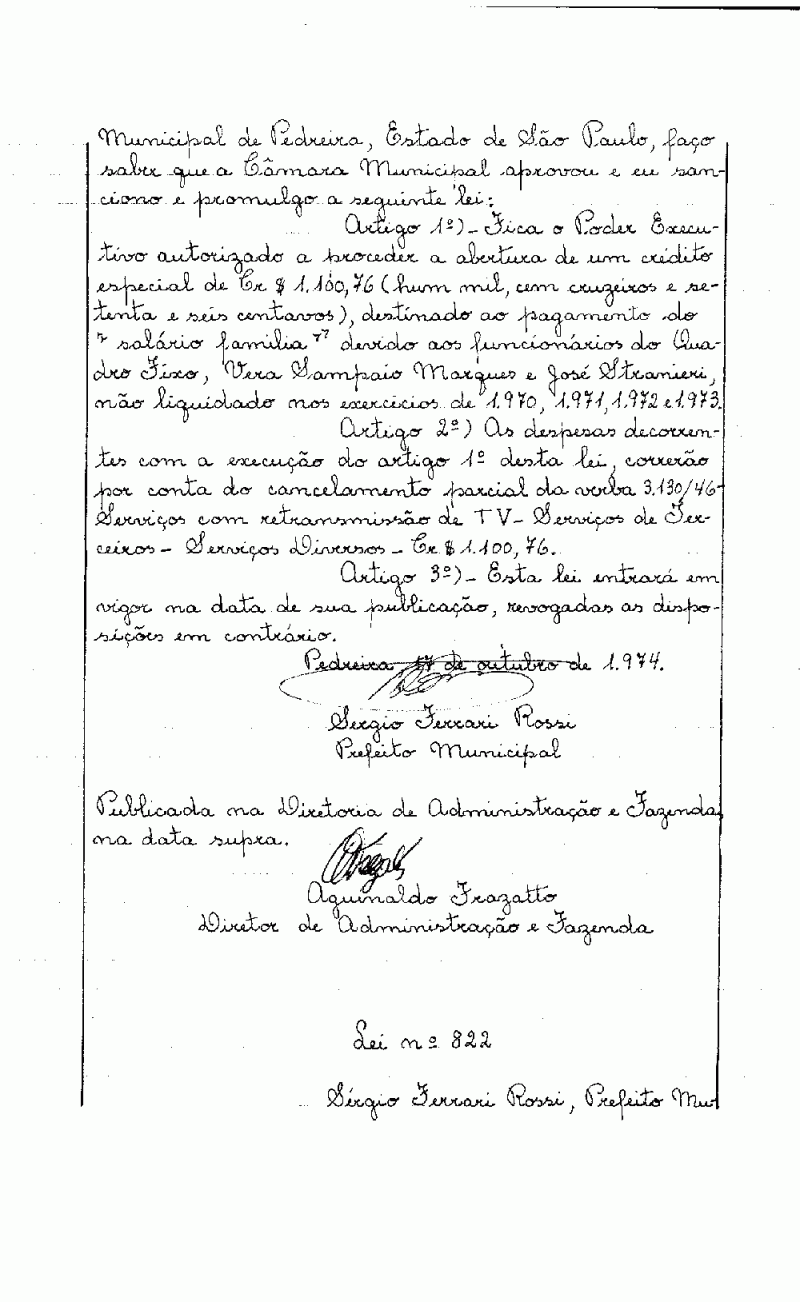 Municipal de Pedreira, Estado de São Paulo, faço
saber que a Câmara Municipal aprovou e eu san-
ciono e promulgo a seguinte lei:
Artigo 1º) - Fica o Poder Execu-
tivo autorizado a proceder a abertura de um crédito
especial de Cr $ 1.100,76 (hum mil, cem cruzeiros e se-
tenta e seis centavos), destinado ao pagamento do
" salário familia " devido aos funcionários do Qua-
dro Fixo, Vera Sampaio Marques e José Stranieri,
não liquidado nos exercicios de 1.970, 1.971, 1.972 e 1.973.
Artigo 2º) As despesas decorren-
tes com a execução do artigo 1º desta lei, correrão
por conta do cancelamento parcial da verba 3.130/46-
Serviços com retransmissão de TV - Serviços de Ter-
ceiros - Serviços Diversos - Cr $ 1.100,76.
Artigo 3º) - Esta lei entrará em
vigor na data de sua publicação, revogadas as dispo-
sições em contrário.
Pedreira 17 de outubro de 1.974.
Sergio Ferrari Rossi
Prefeito Municipal
Publicada na Diretoria de Administração e Fazenda,
na data supra.
Aguinaldo Frazatto
Diretor de Administração e Fazenda
Lei nº 822
Sérgio Ferrari Rossi, Prefeito Mu